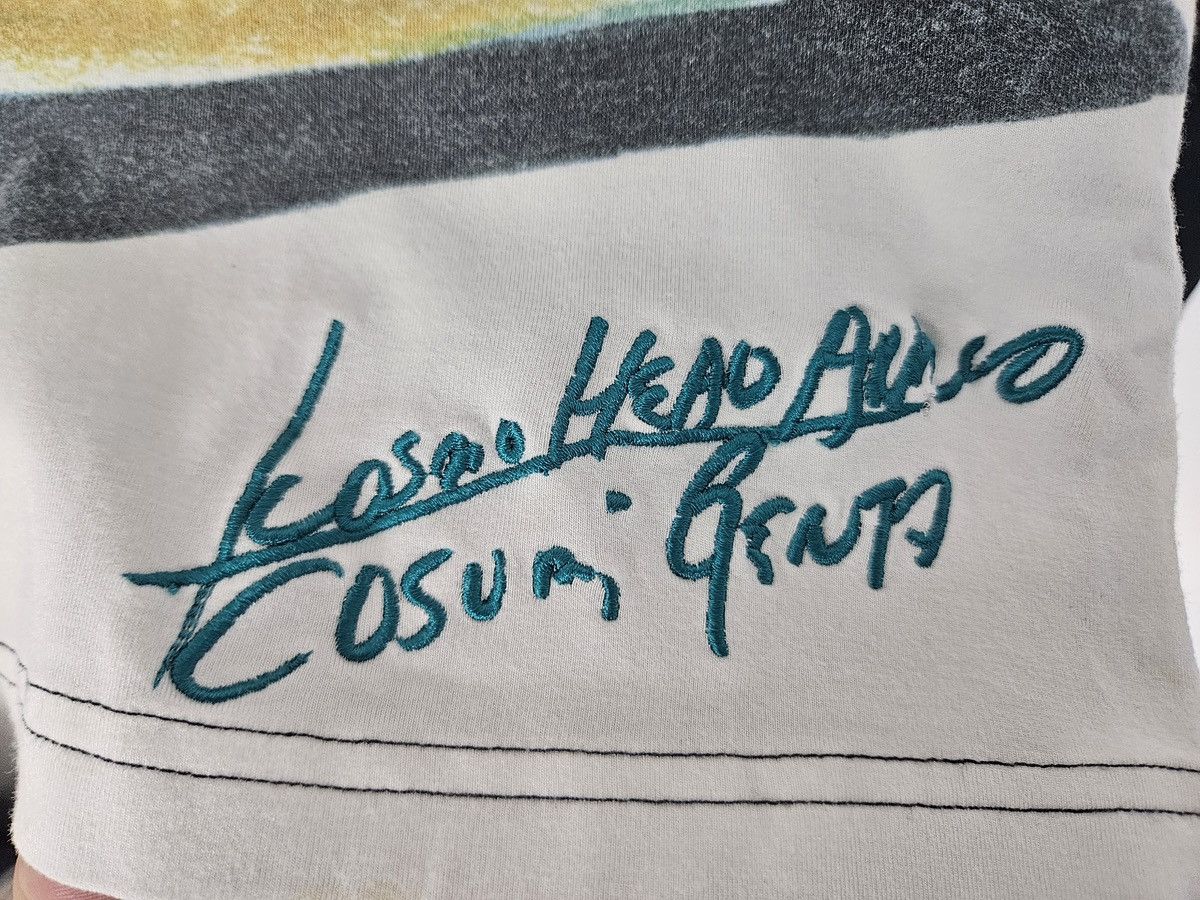 KOSMO HEAD
COSUMI GENTA